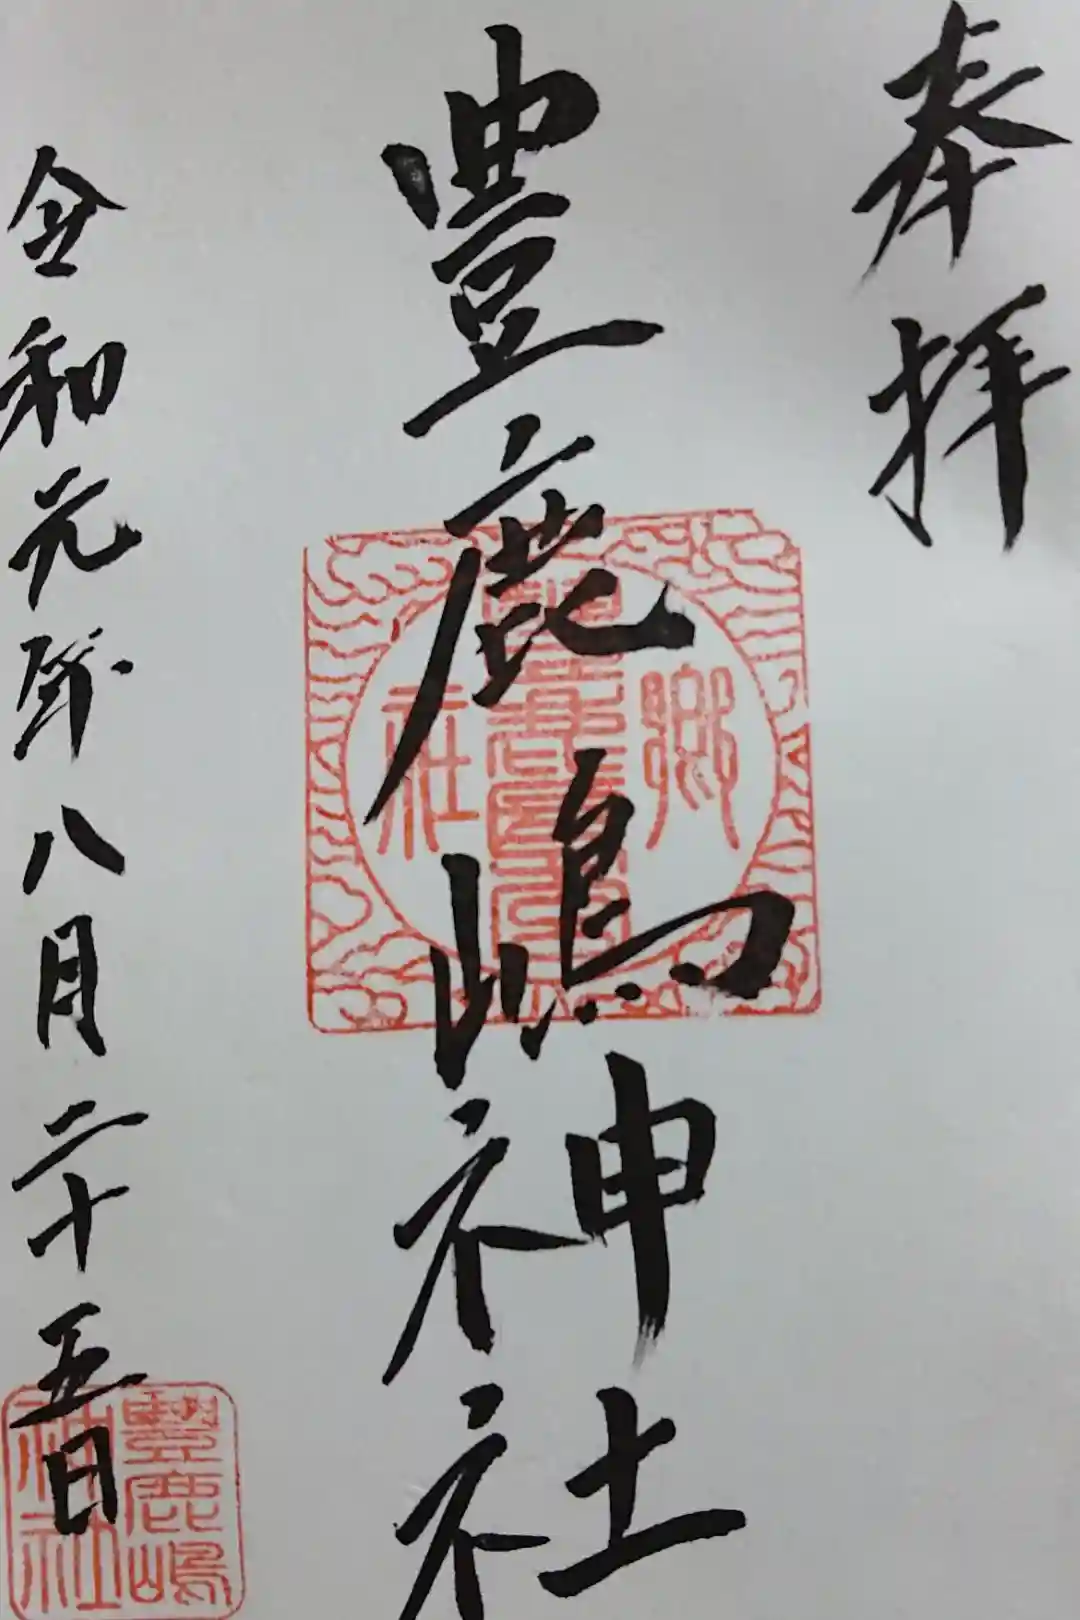 奉拝
豊鹿嶋神社
令和元年八月二十五日
郷
豊鹿嶋
社
豊鹿嶋
神社